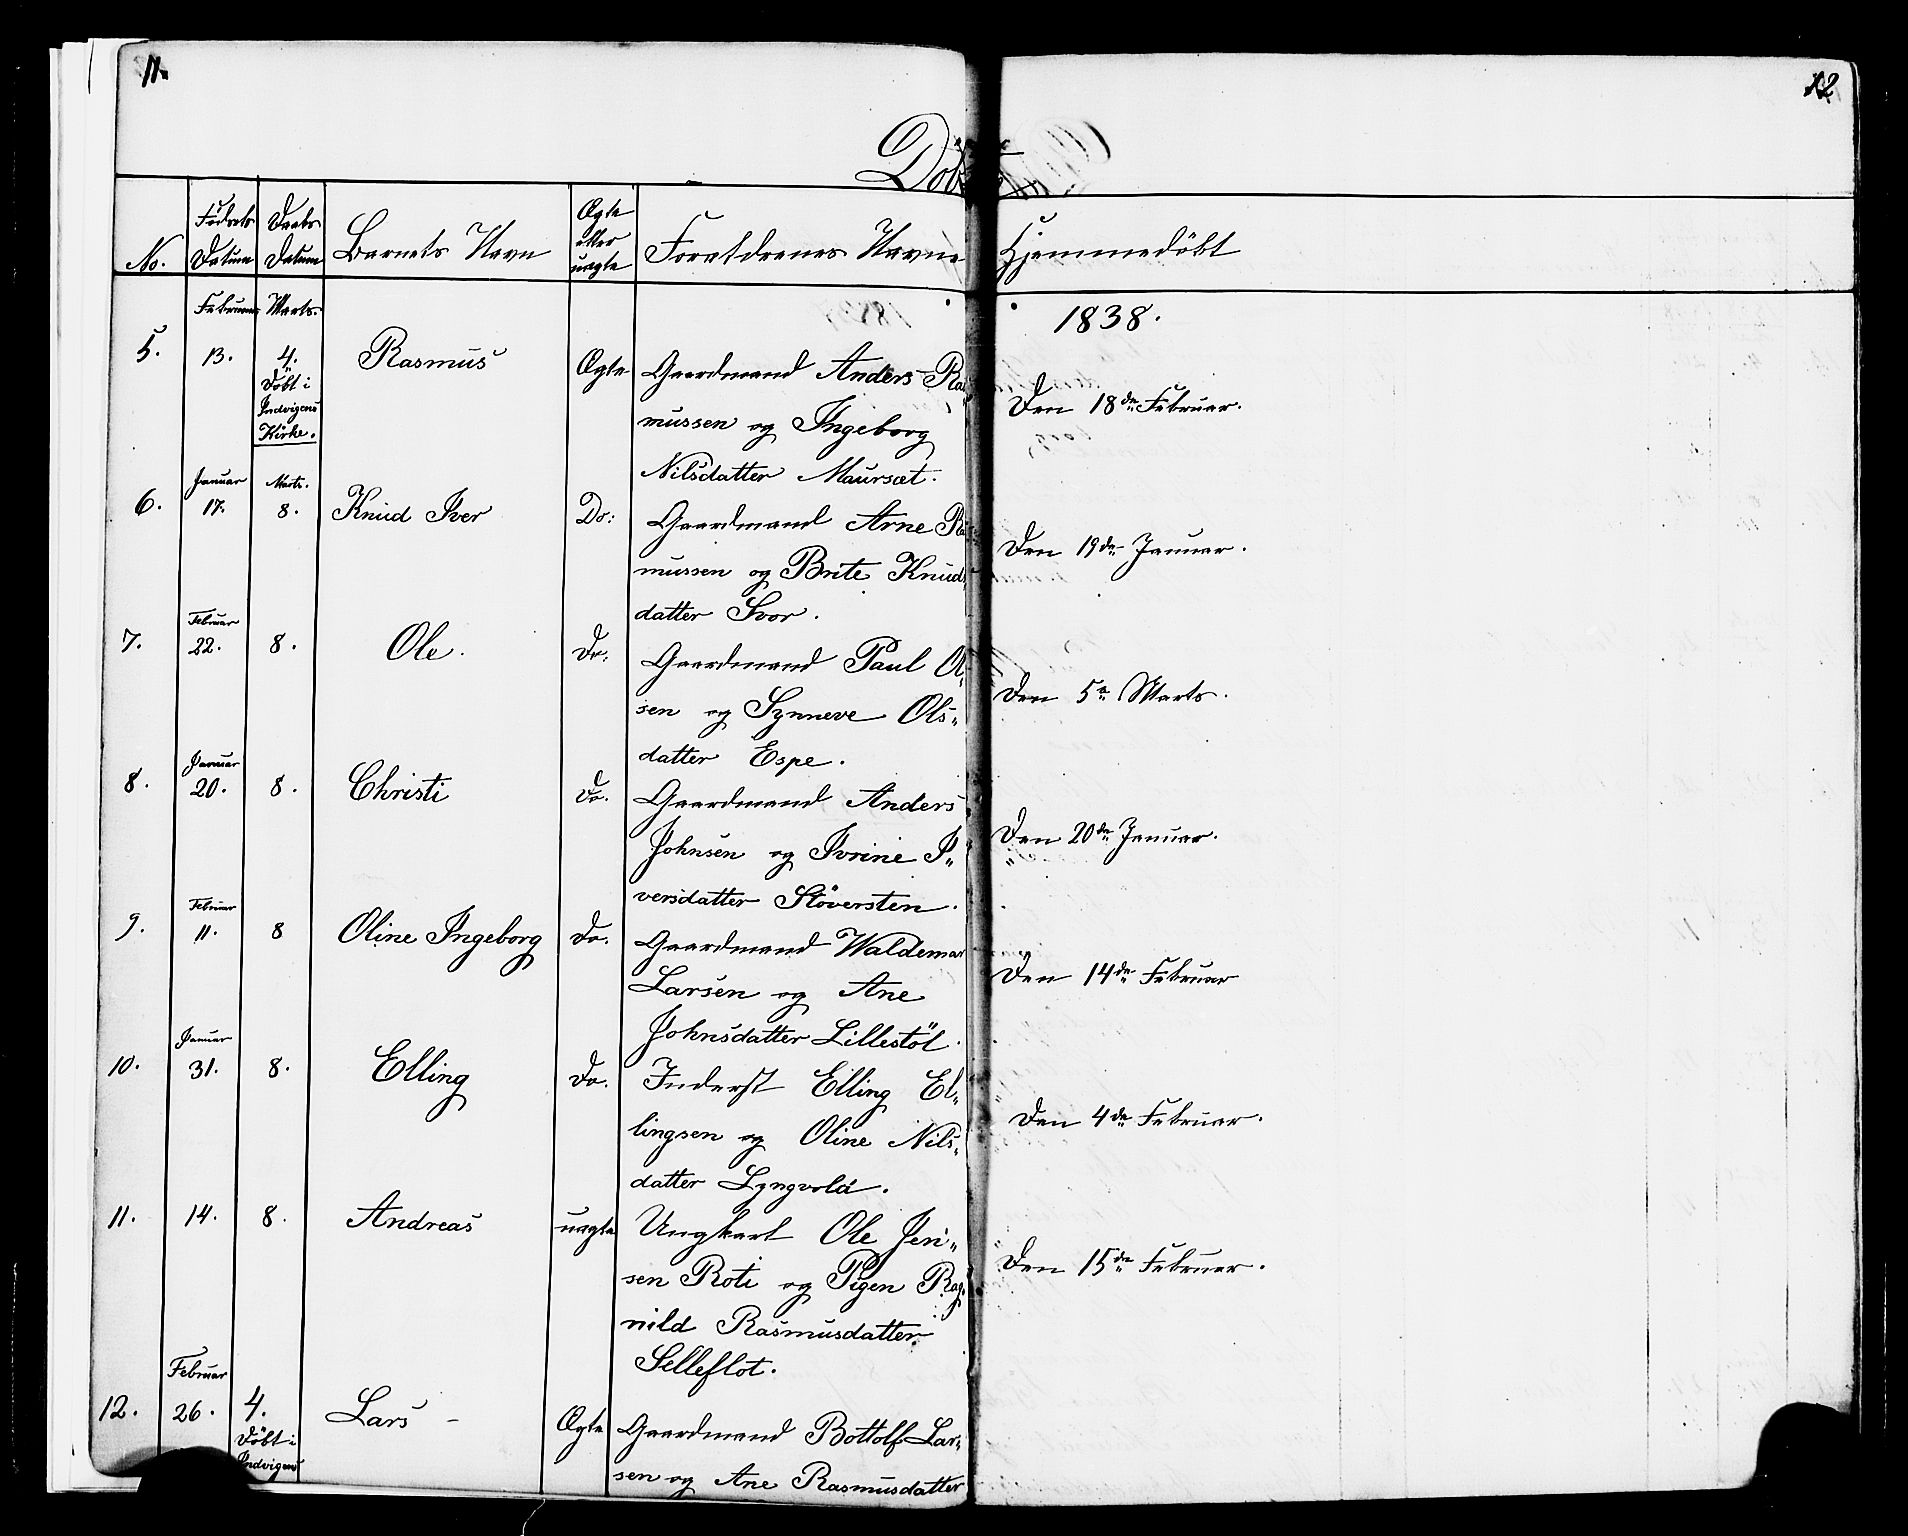 11.
12
Döbte
No.
Fødsels Datum
Daabs Datum
Barnets Navn
Ægte eller uægte
Forældrenes Navne
Hjemmedöbt
1838.
Februar Marts.
5. 13. 4. Rasmus Ægte Gaardmand Anders Ras
Döbt i
Indvigens
Kirke.
mussen og Ingeborg
Nilsdatter Maurset.
Den 18de Februar.
Januar Marts.
6. 17. 8. Knud Iver Do: Gaardmand Arne Ras
mussen og Brite Knuds
datter Svor.
Den 19de Januar.
Februar
7. 22. 8. Ole. Do: Gaardmand Paul Ol„
sen og Synneve Ols„
datter Espe.
Den 5te Marts.
Januar
8. 20. 8. Christi Do. Gaardmand Anders
Johnsen og Ivrine I„
versdatter Stöversten.
Den 20de Januar.
Februar
9. 11. 8 Oline Ingeborg Do. Gaardmand Waldemar
Larsen og Ane
Johnsdatter Lillestöl.
Den 14de Februar
Januar
10. 31. 8. Elling Do. Inderst Elling El„
lingsen og Oline Nils„
datter Lyngvold.
Den 4de Februar.
11. 14. 8. Andreas uægte Ungkarl Ole Jen„
sen Roti og Pigen Rag„
nild Rasmusdatter
Selleflot.
Den 15de Februar.
Februar
12. 26. 4. Lars Ægte Gaardmand Bottolf Lar„
Döbt i
Indvigens
sen og Ane Rasmusdatter